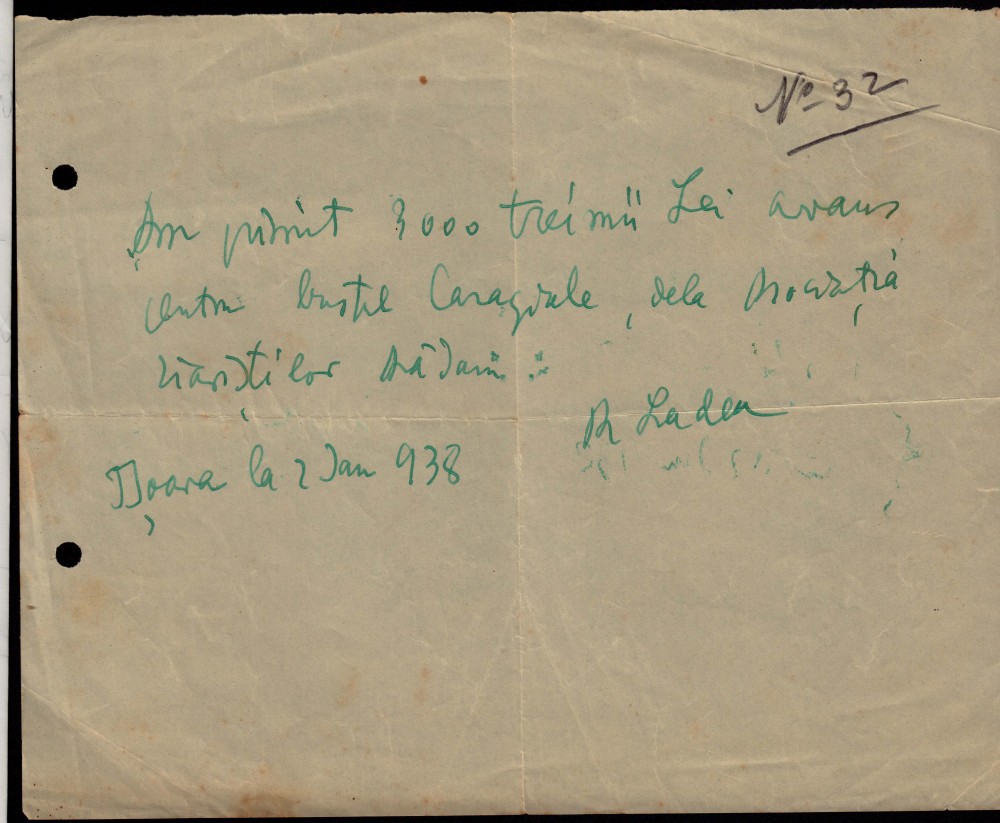 No 32
Am primit 3000 trei mii Lei avans
pentru bustul Caragiale, dela Asociația
ziariștilor Arădani
R Ladea
Tșoara la 2 Jan 938